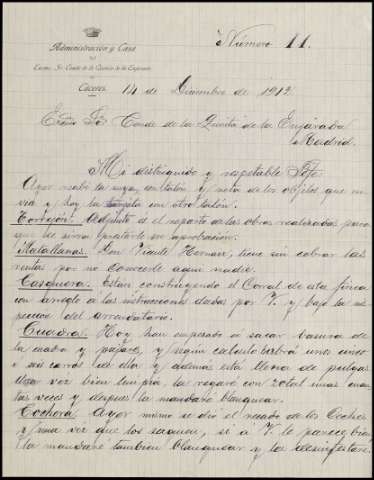 Administración y Casa
del
Excmo. Sr. Conde de la Quinta de la Enjarada
Cáceres
Número 11.
14 de Diciembre de 1912
Exmo Sr Conde de la Quinta de la Enjarada
Madrid.
Mi distinguido y respetable Jefe
Ayer recibí la suya, un talón y nota de los objetos que en
vía y hoy la en otro talón.
Torrejón. Adjunto el reparto de las obras realizadas para
que se sirva prestarle su aprobación.
Matallana. Don Vicente Hernanz, tiene sin cobrar las
rentas por no conocerle aun nadie.
Casquera. Están construyendo el Corral de esta finca
con arreglo á las instrucciones dadas por V. y bajo la ins
pección del arrendatario.
Cuadra. Hoy han empezado á sacar basura de
la cuadra y pajares, y según calculo habrá unos cinco
ó seis carros de ella y además está llena de pulgas
Una vez bien limpia, la regaré con zotal unas cuan
tas veces y después la mandaré blanquear.
Cochera. Ayer mismo se dió el recado de los Coches
y una vez que los saquen, si á V. le parece bien
la mandaré tambien blanquear y la desinfectaré.